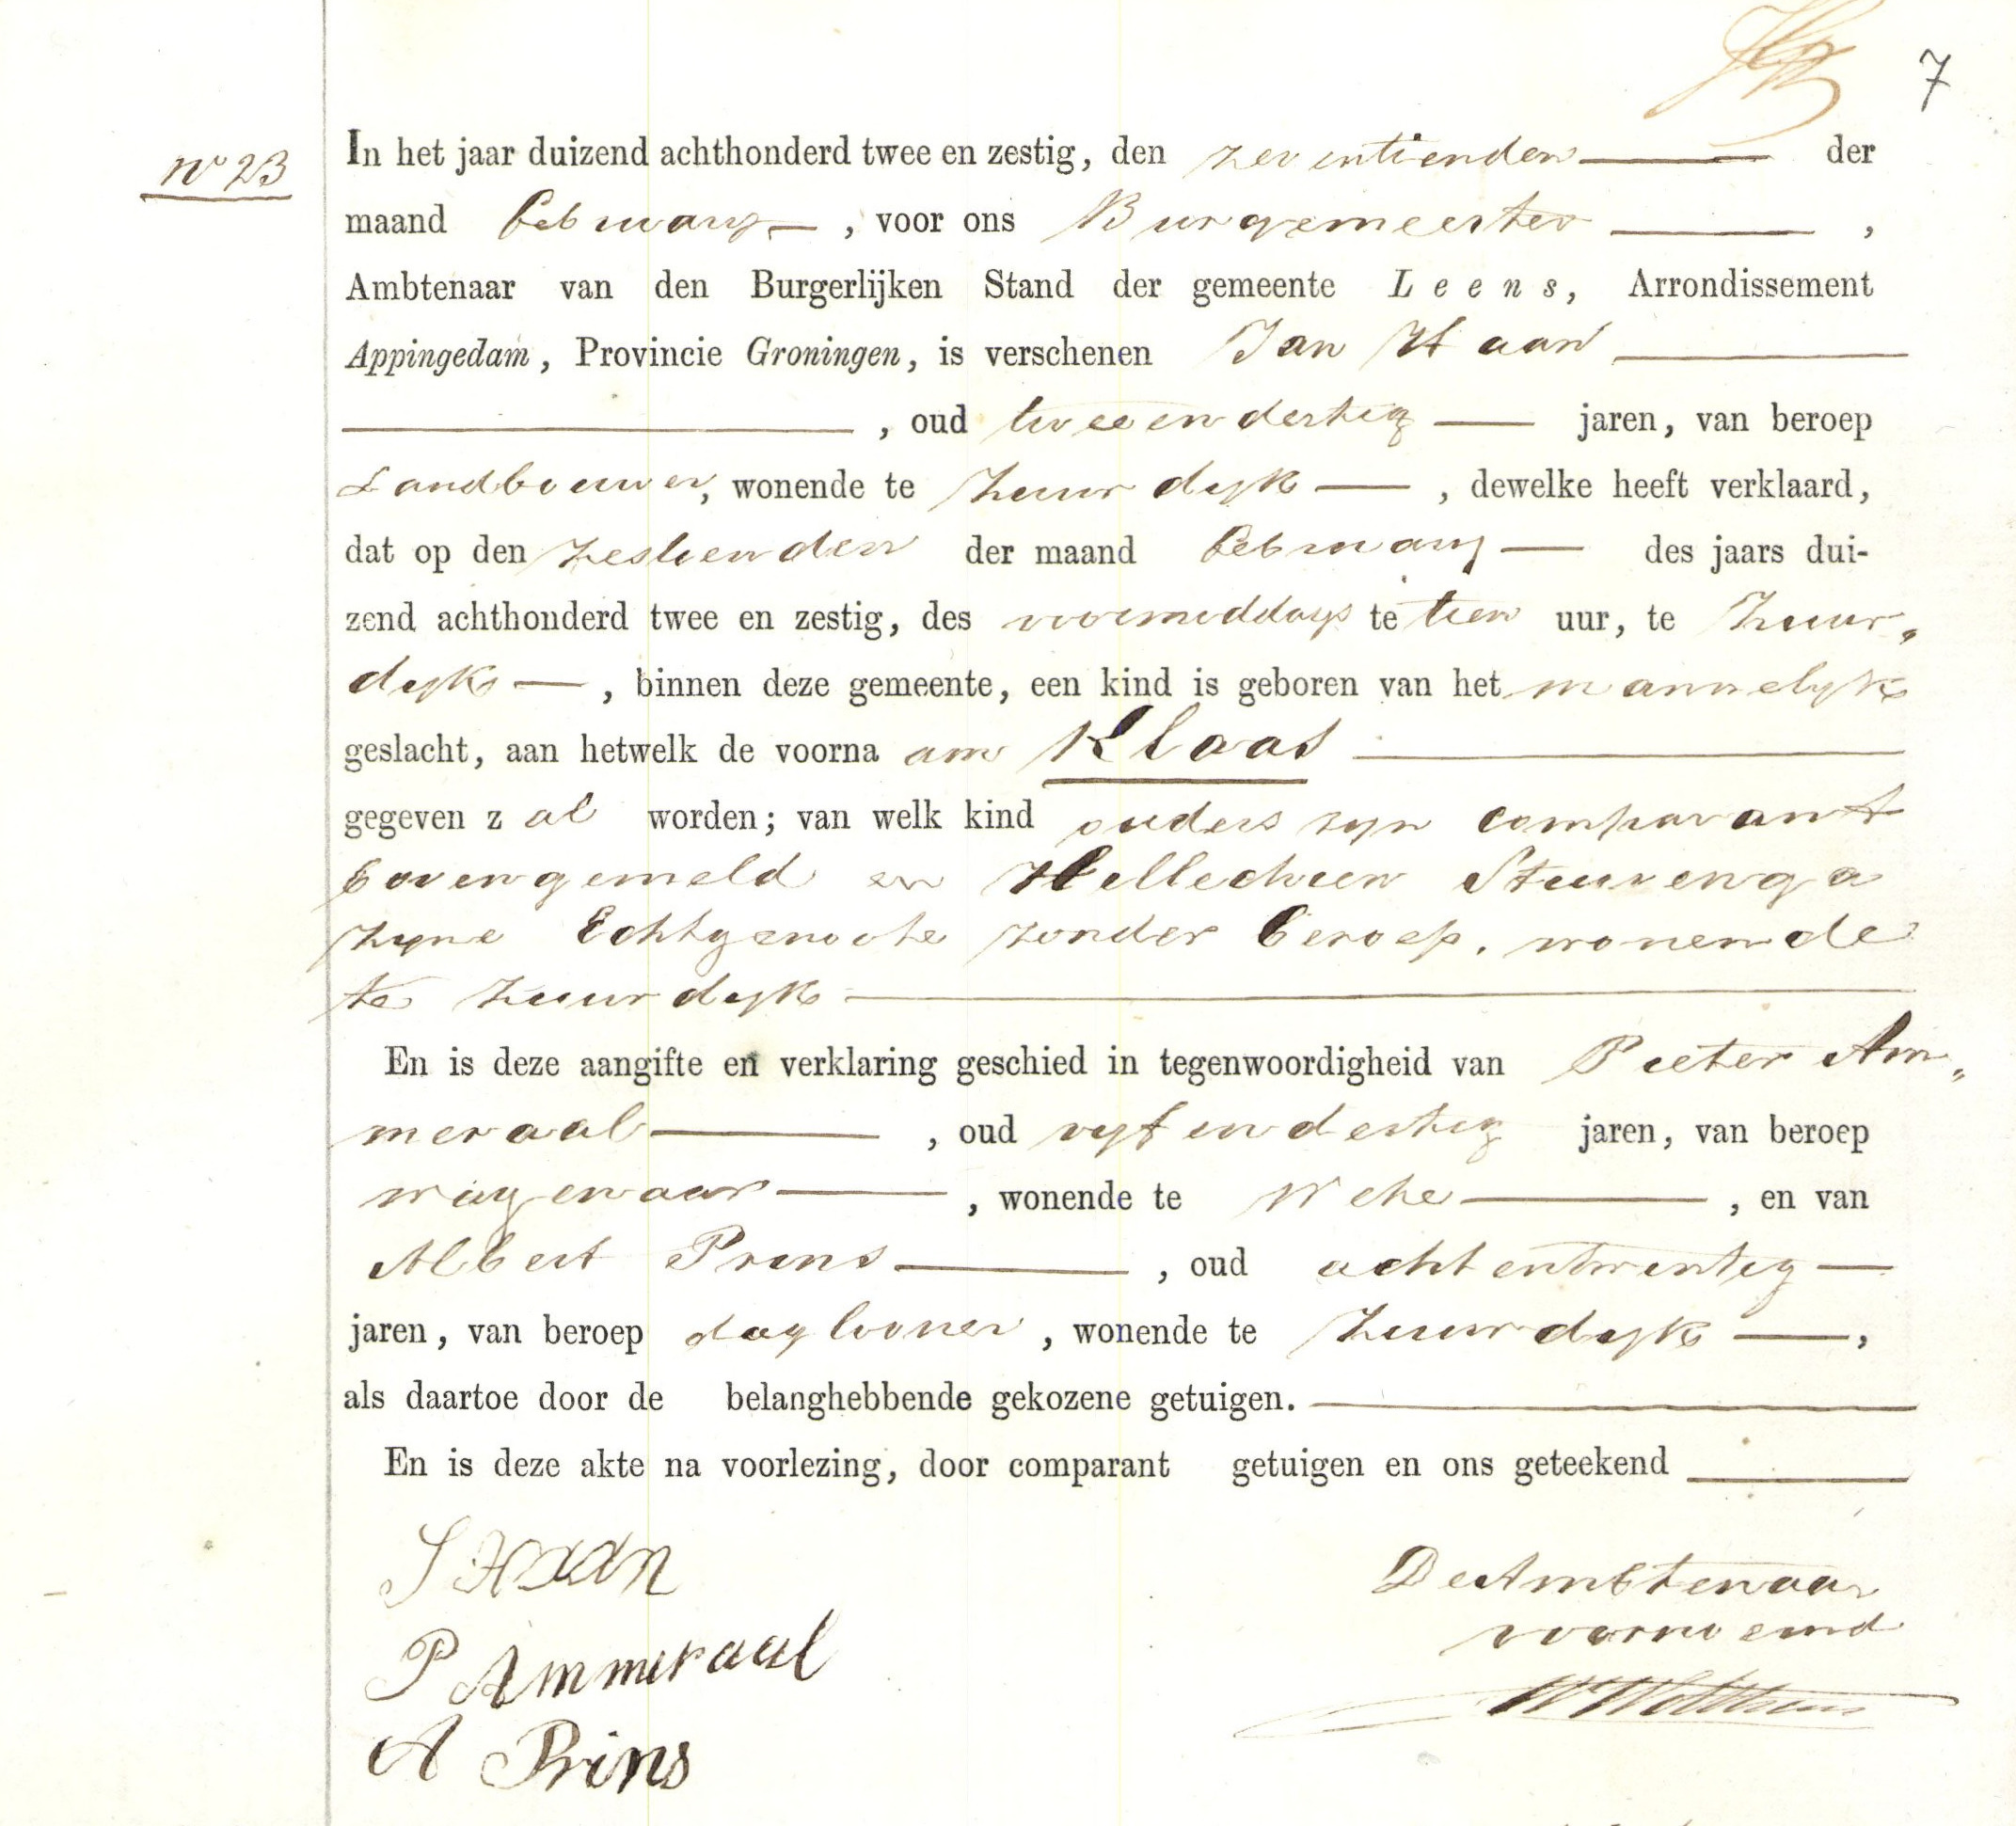 7
No 23
In het jaar duizend achthonderd twee en zestig, den zeventienden der
maand February, voor ons Burgemeester,
Ambtenaar van den Burgerlijken Stand der gemeente Leens, Arrondissement
Appingedam, Provincie Groningen, is verschenen Jan Haan
, oud tweeendertig jaren, van beroep
Landbouwer, wonende te Zuurdyk, dewelke heeft verklaard,
dat op den zestienden der maand February des jaars dui-
zend achthonderd twee en zestig, des voormiddags te tien uur, te Zuur„
dyk, binnen deze gemeente, een kind is geboren van het mannelyk
geslacht, aan hetwelk de voorna am Klaas
gegeven z al worden; van welk kind ouders zyn comparant
bovengemeld en Hillechien Stuivenga
zyne Echtgenoote zonder beroep, wonende
te Zuurdyk
En is deze aangifte en verklaring geschied in tegenwoordigheid van Pieter Am„
meraal, oud vyfendertig jaren, van beroep
wagenaar, wonende te Wehe, en van
Albert Prins, oud achtentwintig
jaren, van beroep daglooner, wonende te Zuurdyk,
als daartoe door de belanghebbende gekozene getuigen.
En is deze akte na voorlezing, door comparant getuigen en ons geteekend
J Haan
P Ammeraal
A Prins
De Ambtenaar
voornoemd